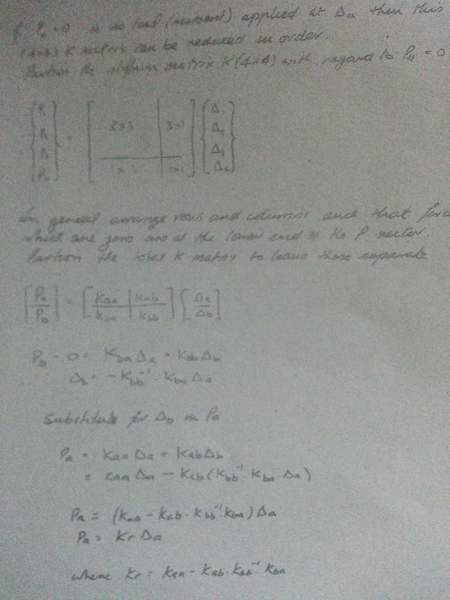 If P₄ = 0 ie no load (moment) applied at Δ₄ then this
(4x4) K matrix can be reduced in order.
Partion the stiffness matrix K (4x4) with regard to P₄ = 0
{P₁ P₂ P₃ P₄} = [3x3 | 3x1 / 1x3 | 1x1] {Δ₁ Δ₂ Δ₃ Δ₄}
In general arrange rows and columns such that forces
which are zero are at the lower end of the P vector.
Partion the K matrix to leave these separate
[Pa / Pb] = [Kaa | Kab / Kba | Kbb] [Δa / Δb]
Pb = 0 = Kba Δa + Kbb Δb
Δb = - Kbb⁻¹ · Kba Δa
Substitute for Δb in Pa
Pa = Kaa Δa + Kab Δb
= Kaa Δa - Kab (Kbb⁻¹ Kba · Δa)
Pa = (Kaa - Kab · Kbb⁻¹ Kba) Δa
Pa = Kr Δa
where Kr = Kaa - Kab · Kbb⁻¹ Kba